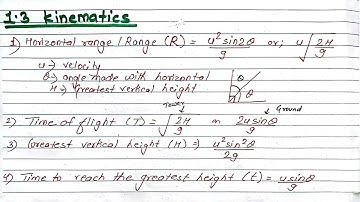 1.3 kinematics
1) Horizontal range / Range (R) = u²sin2θ/g or; u√(2H/g)
u → velocity
θ → angle made with horizontal
H → Greatest vertical height
θ
θ
Tower
Ground
2) Time of flight (T) = √(2H/g) or 2usinθ/g
3) Greatest vertical height (H) = u²sin²θ/2g
4) Time to reach the greatest height (t) = usinθ/g